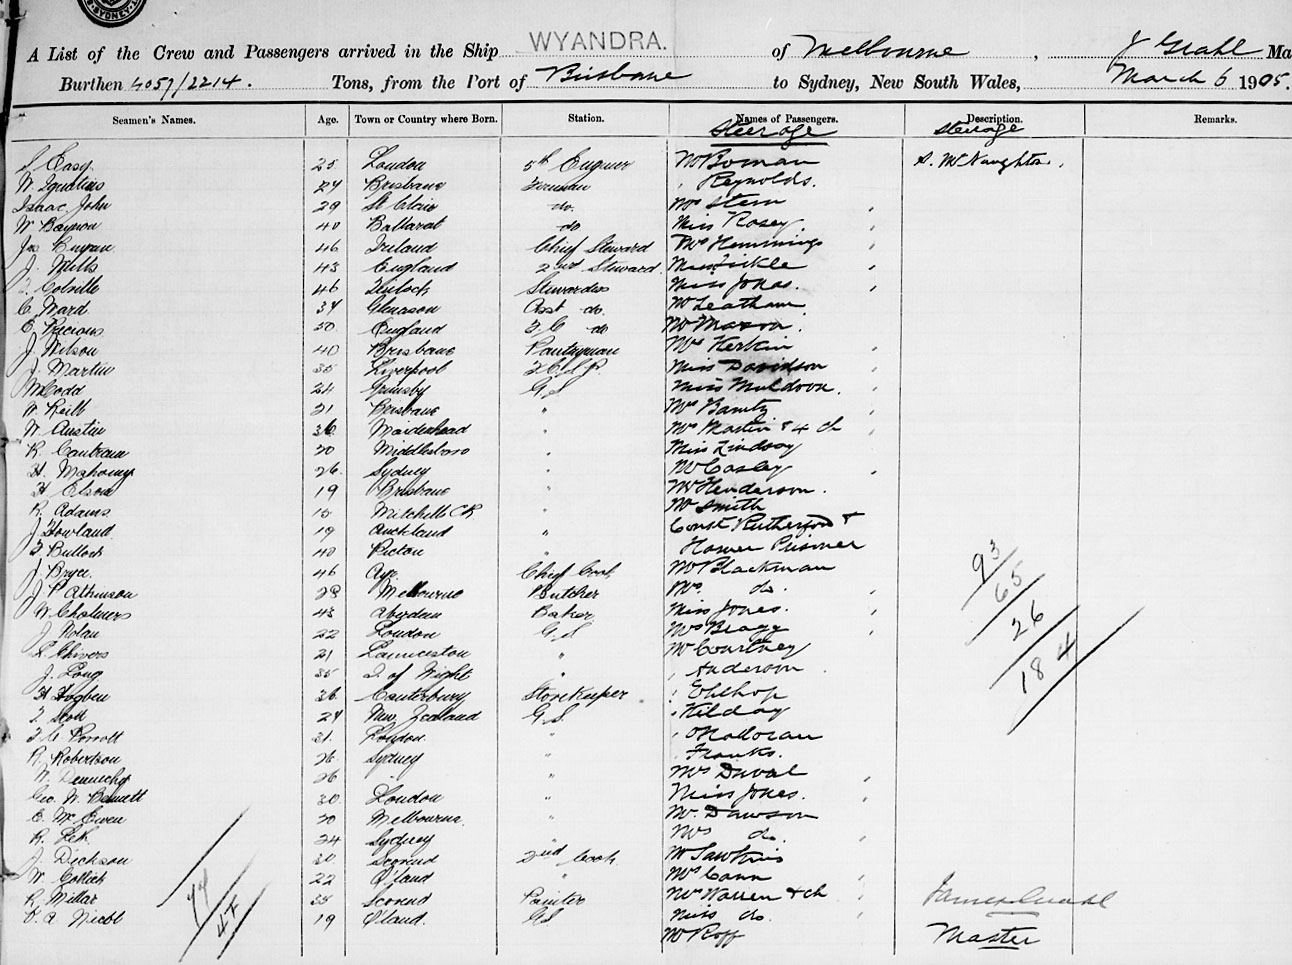 A List of the Crew and Passengers arrived in the Ship WYANDRA. of Melbourne, J Grahl Ma
Burthen 4057/2214. Tons, from the Port of Brisbane to Sydney, New South Wales, March 6 1905.
Seamen's Names. Age. Town or Country where Born. Station. Names of Passengers. Description. Remarks.
Steerage Steerage
Easy 25 London 5th Engineer Mr Boman S. McNaughton.
W. Ignatius 27 Brisbane Fireman Reynolds.
Isaac John 29 St Clair do. Mrs Stern
W Baynon 40 Ballarat do Miss Rosey
Jas Curran 46 Ireland Chief Steward Mrs Hemmings
J. Mills 43 England 2nd Steward Miss Tickle
Colville 46 Stewardess Miss Jones.
C. Ward 34 Glasgow Asst do. Mr Leatham
E. Precious 50 England do Mr Mason.
J Wilson 40 Brisbane Pantryman Mrs Kerkin
J. Martin 35 Liverpool Miss Davidson
24 Grimsby G.S Miss Muldoon.
W. Reill 21 Brisbane " Mrs
W. Austin 36 Maidenhead " Mrs Martin & 4 ch
R. 20 Middlesboro " Miss Lindsay
H. Mahoney 26 Sydney " Mr Casley
H Elson 19 Brisbane " Mr Henderson.
R. Adams 15 Mitchells CK " Mr Smith
J Howland 19 Auckland " Const Rutherford &
Bulloch 40 Picton Prisoner
J Bryce. 46 Ayr. Chief Cook Mr Blackman
J. P Atkinson 29 Melbourne Butcher Mrs do.
W. Chalmers 43 Aberdeen Baker Miss Jones.
J Nolan 22 London G.S Mrs Bragg
Chivers 21 Launceston " Mr Courtney
J. Long 35 I. of Wight " Anderson
H Hogben 36 Canterbury Storekeeper
Scott 24 New Zealand G.S Kilday
21 London " OHalloran
R. Robertson 26 Sydney " Franks.
26 " " Mrs Duval
Geo. W. Bennett 30 London " Miss Jones.
E. McEwen 20 Melbourne " Mr. Dawson
R. 24 Sydney " Mrs do.
J. Dickson 30 Scotend 2nd Cook Mr Sawkins
W. 22 Q'land " Mrs Cann
R. Millar 35 Scotend Painter Mrs Warren & ch James Grahl
A Nicol 19 Q'land. G.S Miss do.
Mr Roff Master
93
65
26
184
44
47